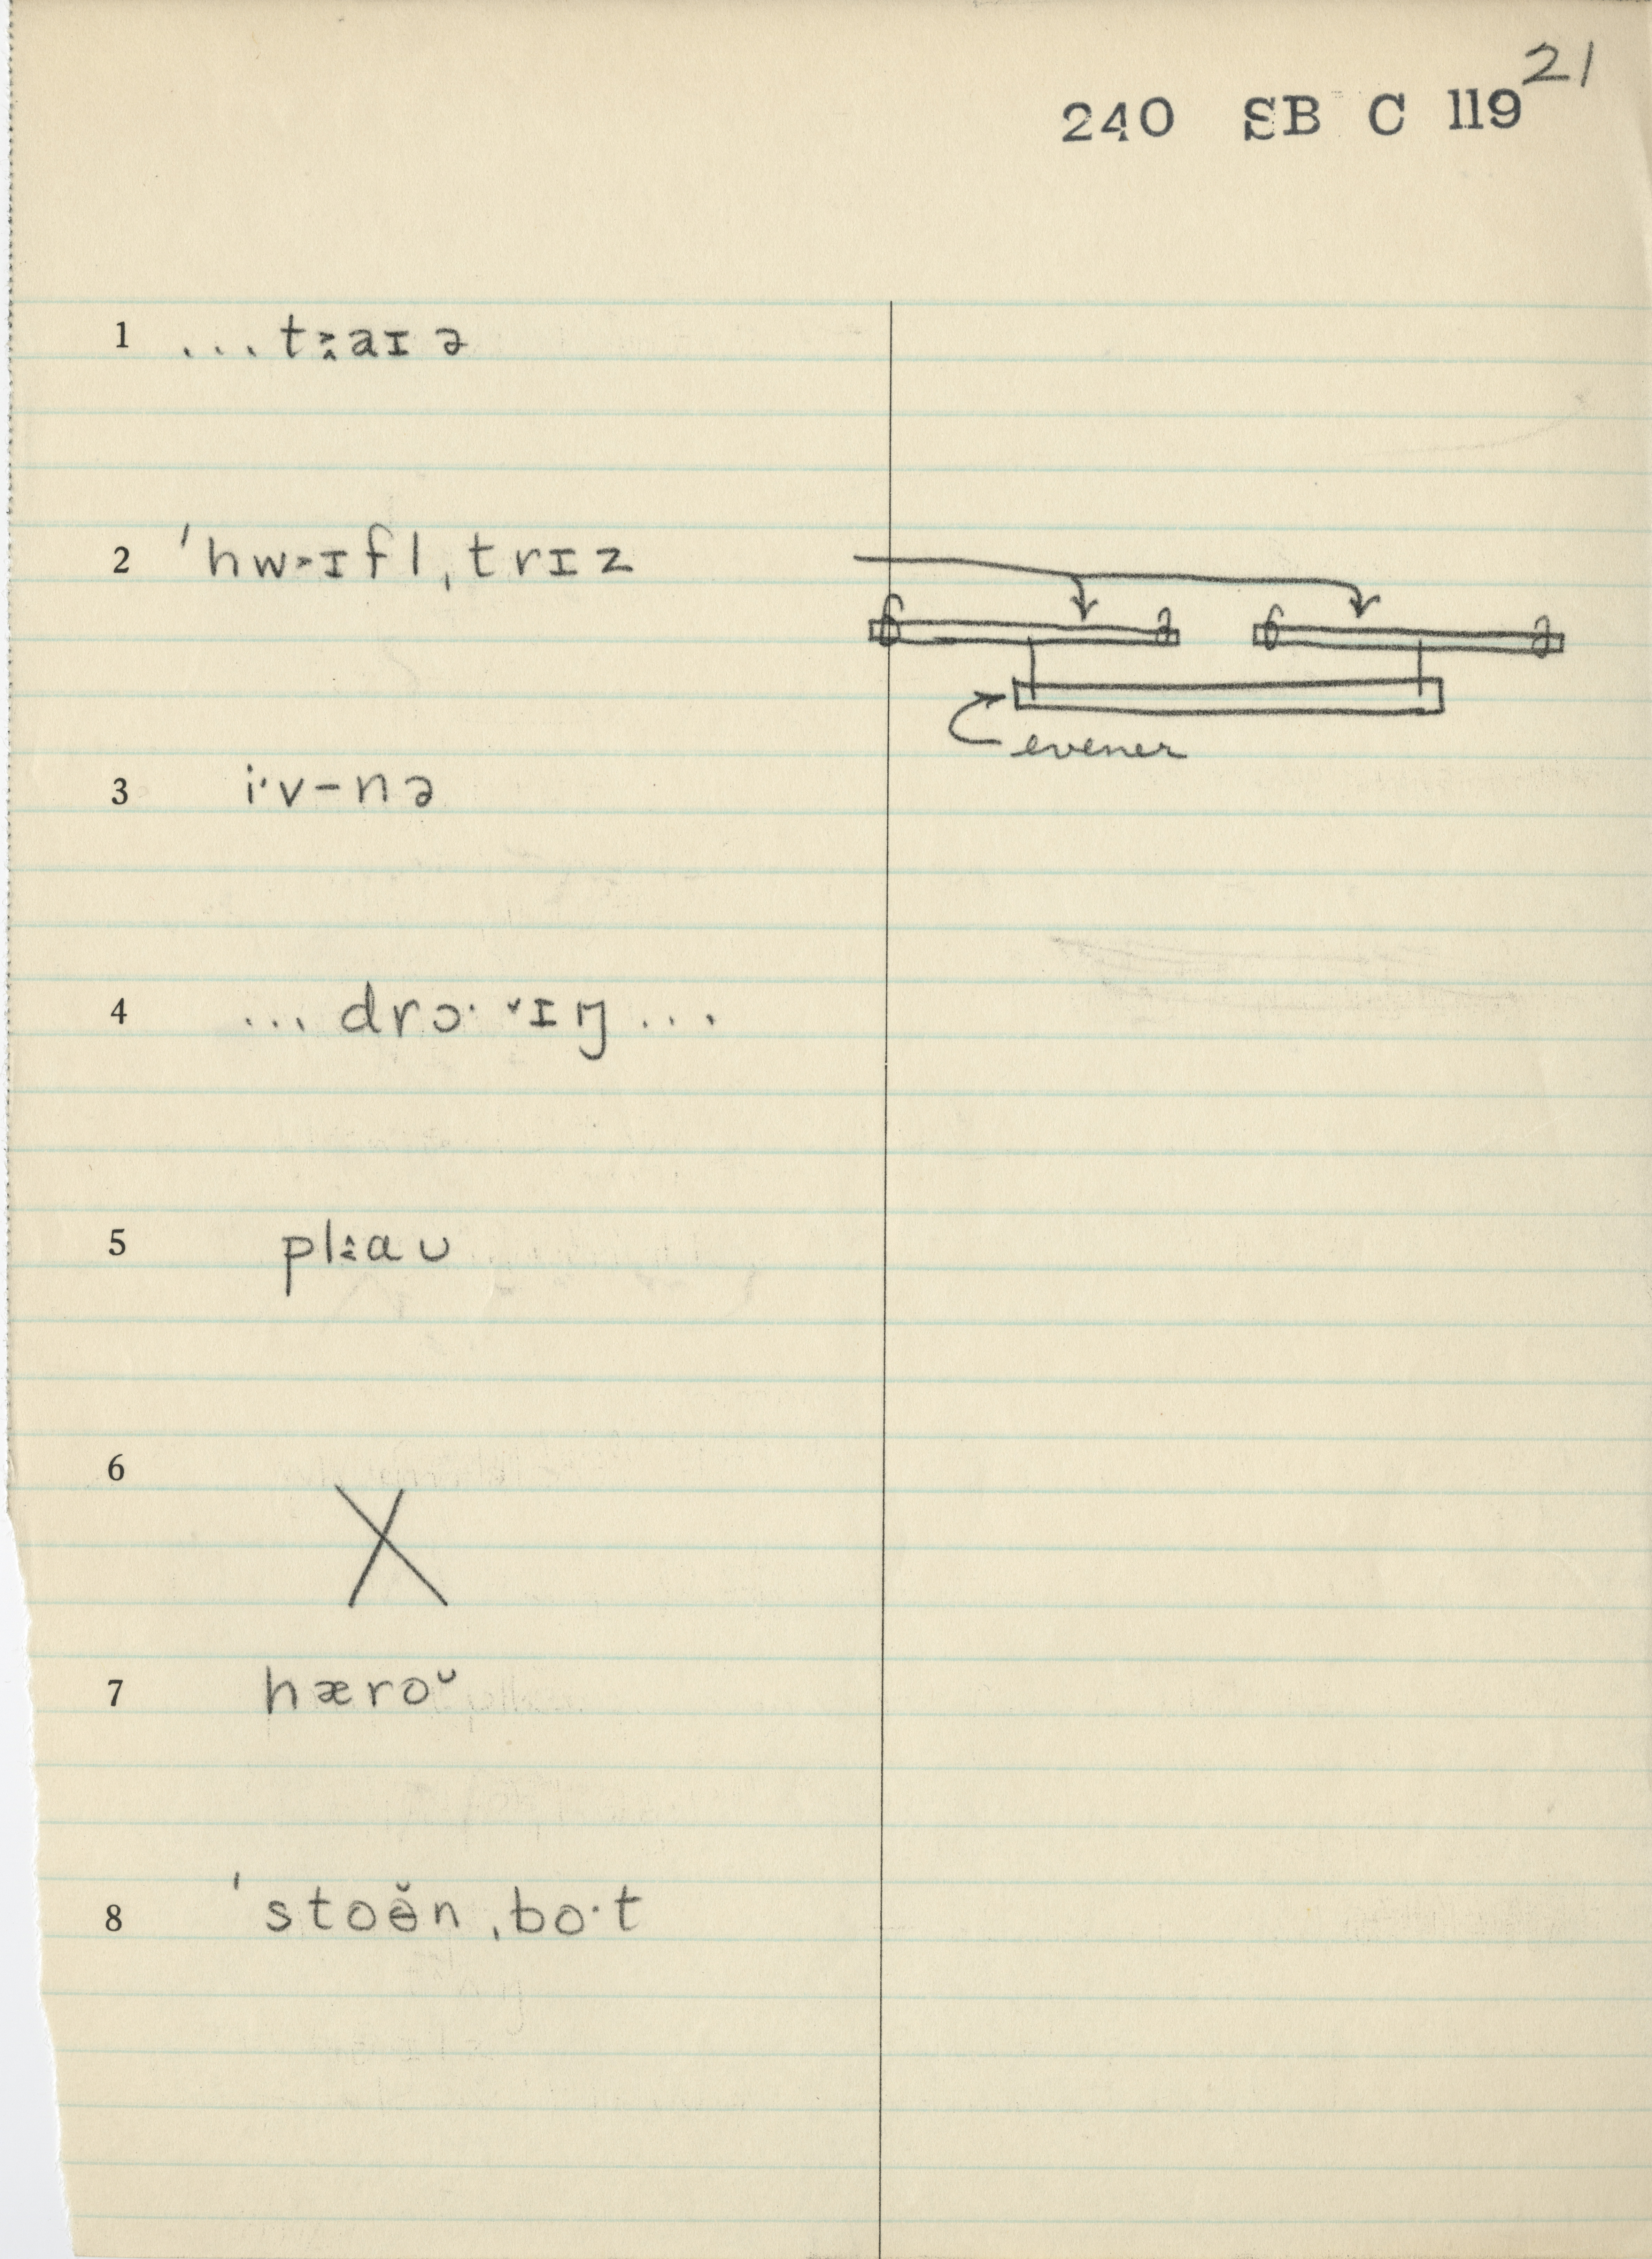 21
240 SB C 119
1 ...t˲aɪə
2 ˈhw˲ɪfl ˌtrɪz
evener
3 i·v–nə
4 ... drɔ· ˅ɪŋ ...
5 pl˰aʊ
6 X
7 hæroᶷ
8 ˈstoə̆n ˌbo·t